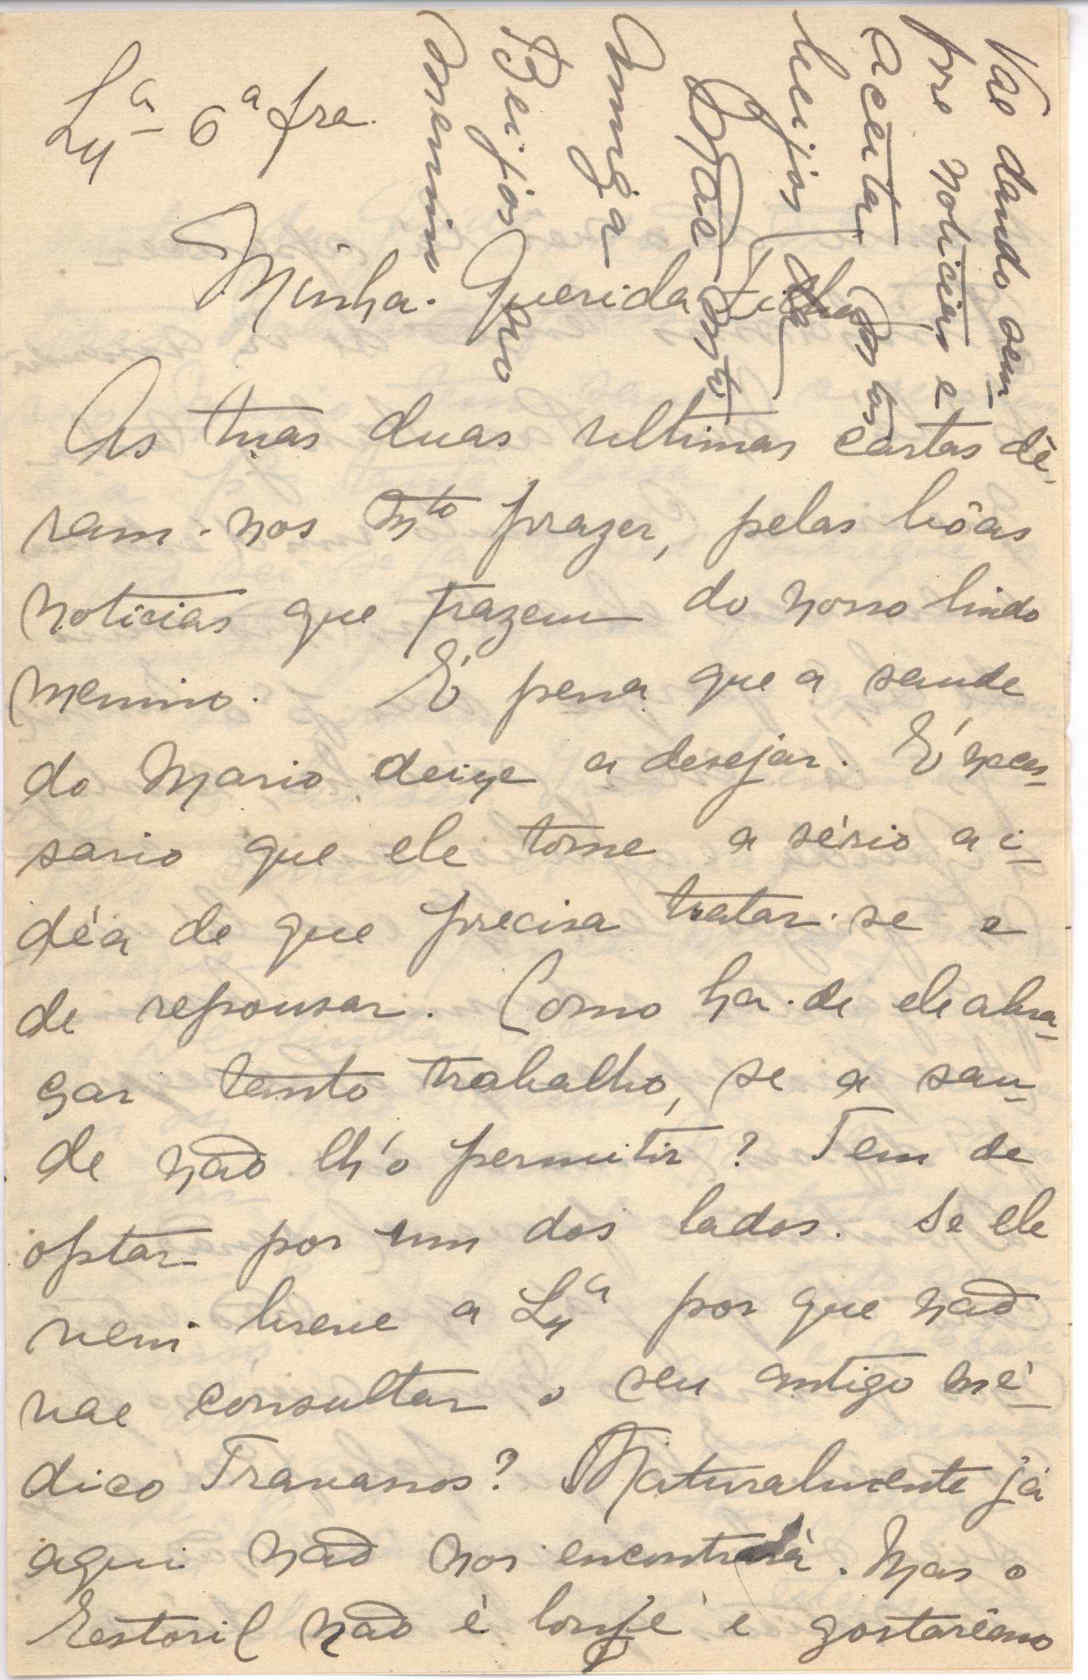 Lxª 6ª fra.
Minha Querida Filha
As tuas duas ultimas cartas dé-
ram-nos mto prazer, pelas bôas
noticias que trazem do nosso lindo
menino. É pena que a saude
do Mario deixe a desejar. É neces-
sario que ele tome a sério a i-
déa de que precisa tratar-se e
de repousar. Como ha-de ele abra-
çar tanto trabalho, se a sau-
de não lh'o permitir? Tem de
optar por um dos lados. Se ele
vem breve a Lxª por que não
vae consultar o seu antigo mé-
dico Travassos? Naturalmente já
aqui não nos encontrará. Mas o
Estoril não é longe e gostariamo
Vae dando sem-
pre noticias e
aceita
beijos da
Mãe mto
amiga
Beijos ao
menino